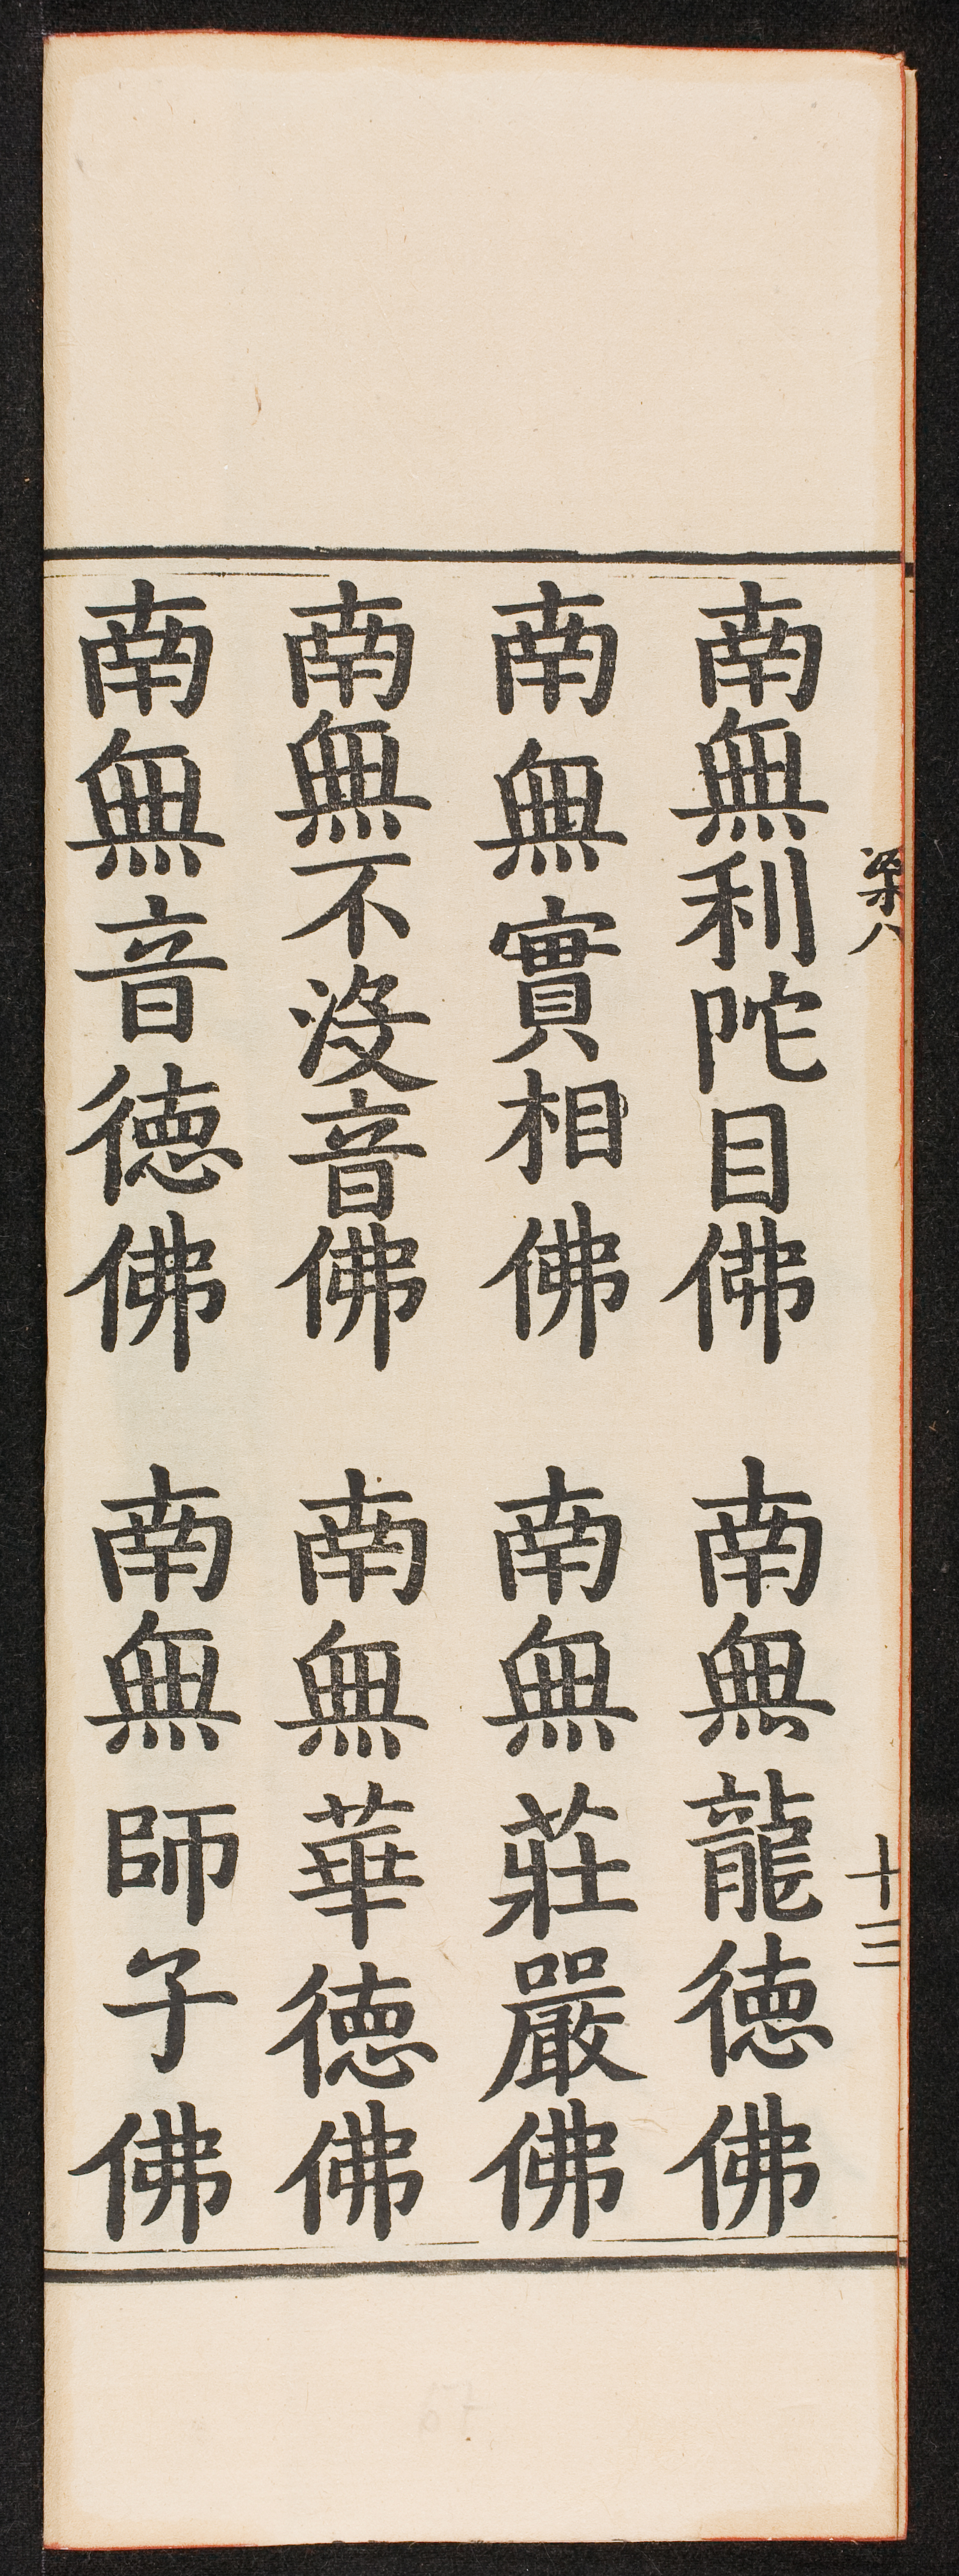 南無利陀目佛 南無龍德佛
南無實相佛 南無莊嚴佛
南無不沒音佛 南無華德佛
南無音德佛 南無師子佛
梁八 十三